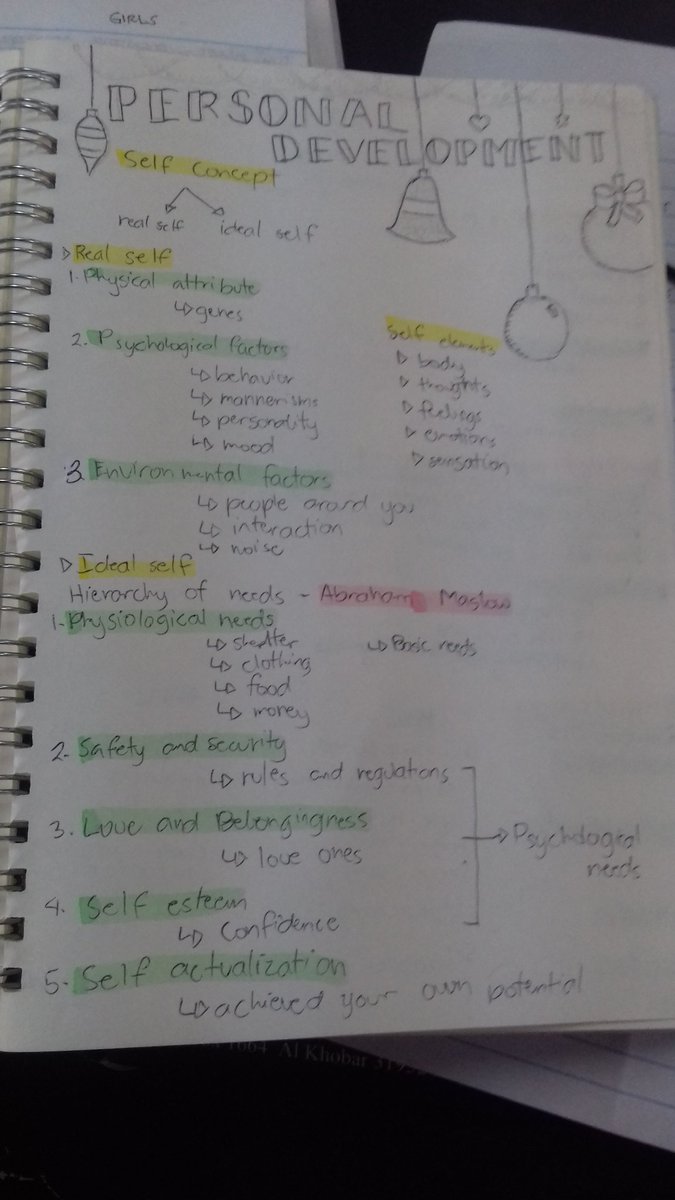 GIRLS
PERSONAL
DEVELOPMENT
Self Concept
real self
ideal self
Real self
1. Physical attribute
genes
2. Psychological factors
behavior
mannerisms
personality
mood
Self elements
body
thoughts
feelings
emotions
sensation
3. Environmental factors
people around you
interaction
noise
Ideal self
Hierarchy of needs - Abraham Maslow
1. Physiological needs
shelter
Basic needs
clothing
food
money
2. Safety and security
rules and regulations
3. Love and Belongingness
love ones
Psychological
needs
4. Self esteem
Confidence
5. Self actualization
achieved your own potential
1664 Al Khobar